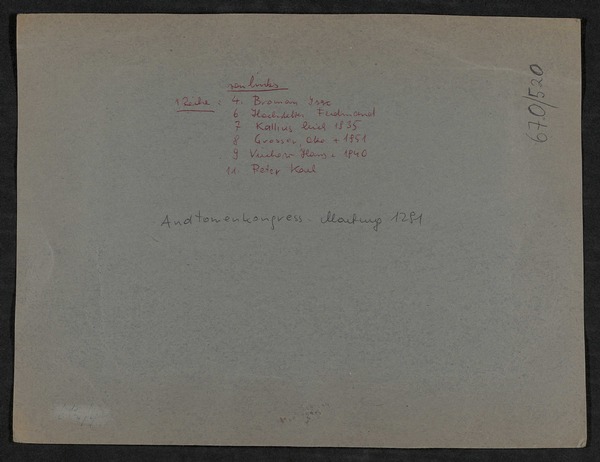 von links
1 Reihe: 4. Broman Ivar
6 Hochstetter Ferdinand
7 Kallius Erich 1935
8 Grosser, Otto + 1951
9 Hans + 1946
11. Peter Karl
Anatomenkongress Marburg 1921
670/520